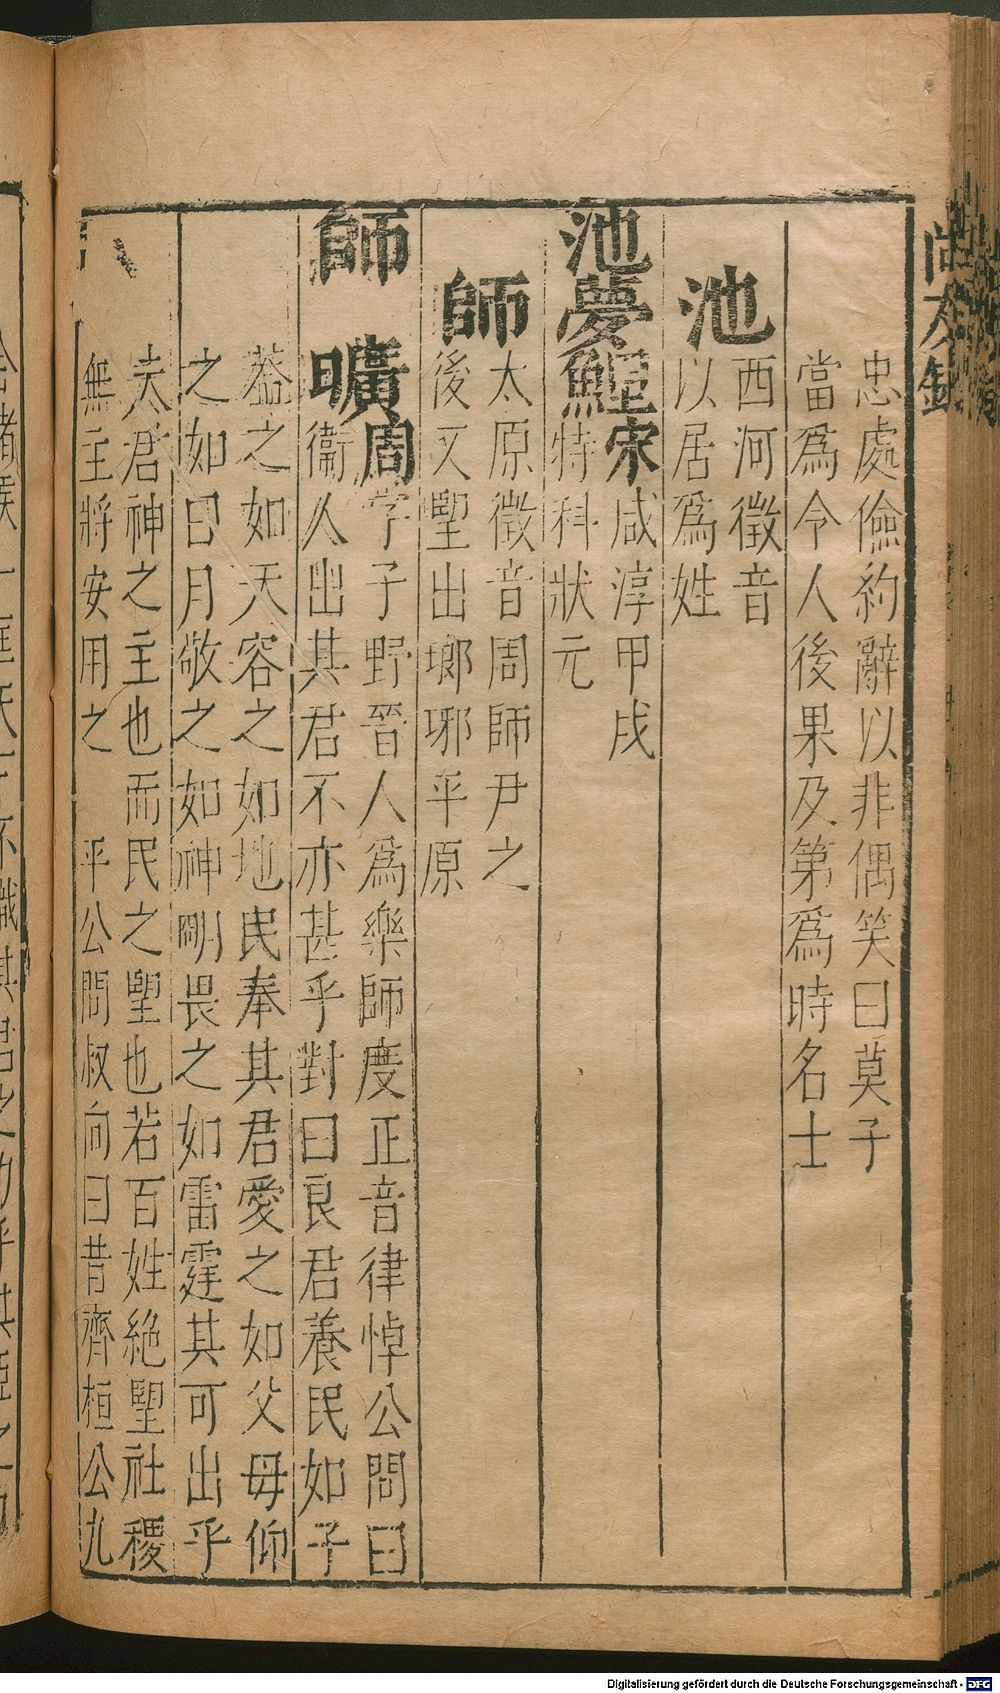 忠處儉約辭以非偶笑曰莫子
當爲令人後果及第爲時名士
池
西河徵音
以居爲姓
池夢鯉宋
咸淳甲戌
特科狀元
師
太原徵音周師尹之
後又望出瑯琊平原
師曠周
字子野晉人爲樂師度正音律悼公問曰
衞人出其君不亦甚乎對曰良君養民如子
蓋之如天容之如地民奉其君愛之如父母仰
之如日月敬之如神明畏之如雷霆其可出乎
夫君神之主也而民之望也若百姓絕望社稷
無主將安用之 平公問叔向曰昔齊桓公九
Digitalisierung gefördert durch die Deutsche Forschungsgemeinschaft - DFG